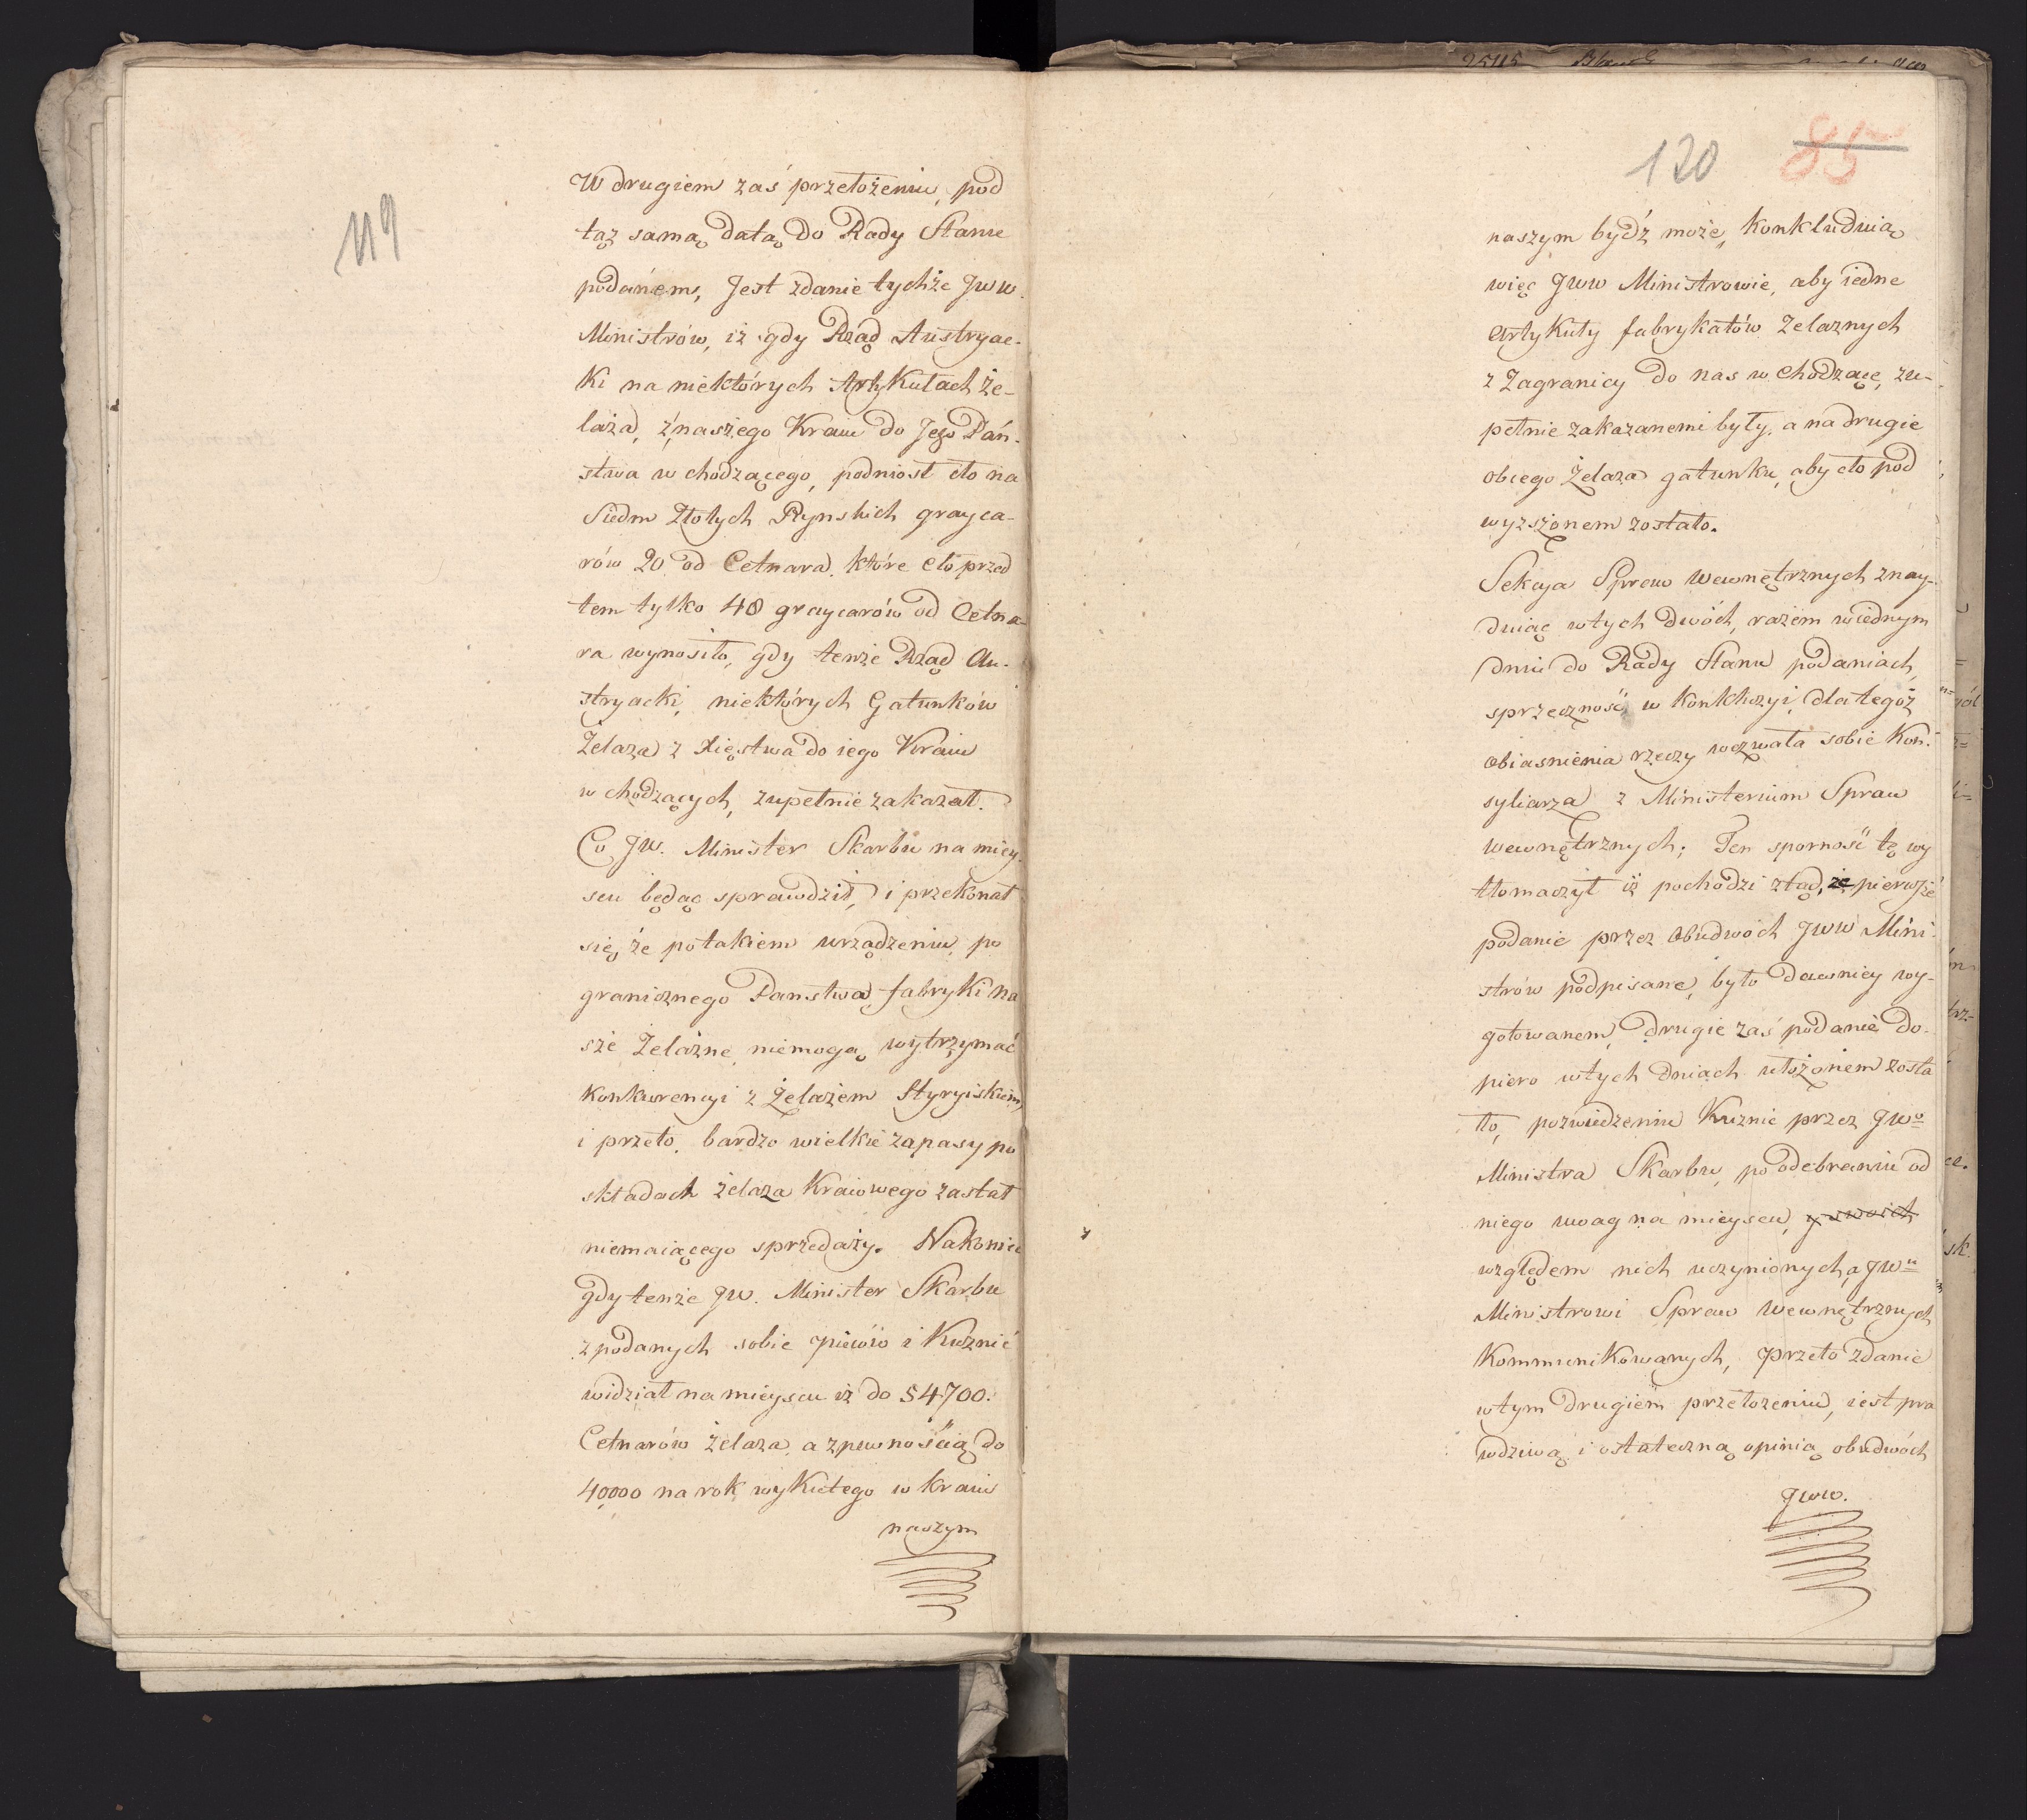 119
W drugiem zaś przełożeniu, pod
tąż samą datą do Rady Stanu
podanem, Jest zdanie tychże JWW.
Ministrów, iż gdy Rząd Austryac-
ki na niektórych Artykułach Że-
laza, z naszego Kraiu do Jego Pań-
stwa wchodzącego, podniosł cło na
Siedm Złotych Rynskich grayca-
rów 20 od Cetnara, które cło przed
tem tylko 48 graycarów od Cetna-
ra wynosiło, gdy tenże Rząd Au-
stryacki, niektórych Gatunków
Żelaza z Xięstwa do iego Kraiu
wchodzących, zupełnie zakazał.
Co JW. Minister Skarbu na miey-
scu będąc sprawdził, i przekonał
się, że po takiem urządzeniu po
granicznego Panstwa, fabryki na
sze Żelazne niemogą wytrzymać
konkurencyi z Żelazem Styryiskiem,
i przeto, bardzo wielkie zapasy po
składach żelaza Kraiowego zastał
niemaiącego sprzedaży. Nakoniec
gdy tenże JW. Minister Skarbu
z podanych sobie piećów i Kuznić
widział na mieyscu iż do 54700.
Cetnarów żelaza, a z pewnością do
40,000 na rok wykutego w kraiu
naszym
120 85
naszym bydź może, konkluduią
więc JWW Ministrowie, aby iedne
Artykuły fabrykatów Żelaznych
z Zagranicy do nas wchodzące, zu-
pełnie zakazanemi były, a na drugie
obcego Żelaza gatunku, aby cło pod
wyzszonem zostało.
Sekcya Spraw Wewnętrznych znay-
duiąc w tych dwóch, razem w iednym
dniu do Rady Stanu podaniach,
sprzeczność w Konkluzyi, dla tegoż
obiasnienia rzeczy wezwała sobie Kon-
syliarza z Ministerium Spraw
wewnętrznych; Ten sporność tę wy
tłomaczył iż pochodzi ztąd, że pierwsze
podanie przez Obudwóch JWW Mini-
strów podpisane, było dawniey wy-
gotowanem, drugie zaś podanie do-
piero w tych dniach ułożonem zosta
ło, po zwiedzeniu Kuznic przez JWo
Ministra Skarbu, po odebraniu od
niego uwag na mieyscu, y swoich
względem nich uczynionych, a JWu
Ministrowi Spraw Wewnętrznych
Kommunikowanych, przeto zdanie
w tym drugiem przełozeniu, iest pra
wdziwą i ostateczną opinią obudwóch
JWW.